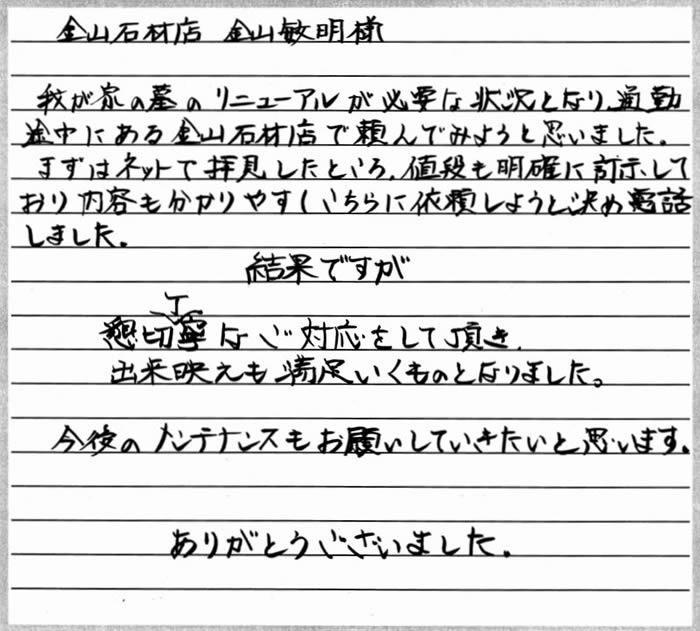 金山石材店 金山敏明様
我が家の墓のリニューアルが必要な状況となり、通勤
途中にある金山石材店で頼んでみようと思いました。
まずはネットで拝見したところ、値段も明確に訂示して
おり内容も分かりやすくこちらに依頼しようと決め電話
しました。
結果ですが
丁
懇切寧なご対応をして頂き、
出来映えも満足いくものとなりました。
今後のメンテナンスもお願いしていきたいと思います。
ありがとうございました。